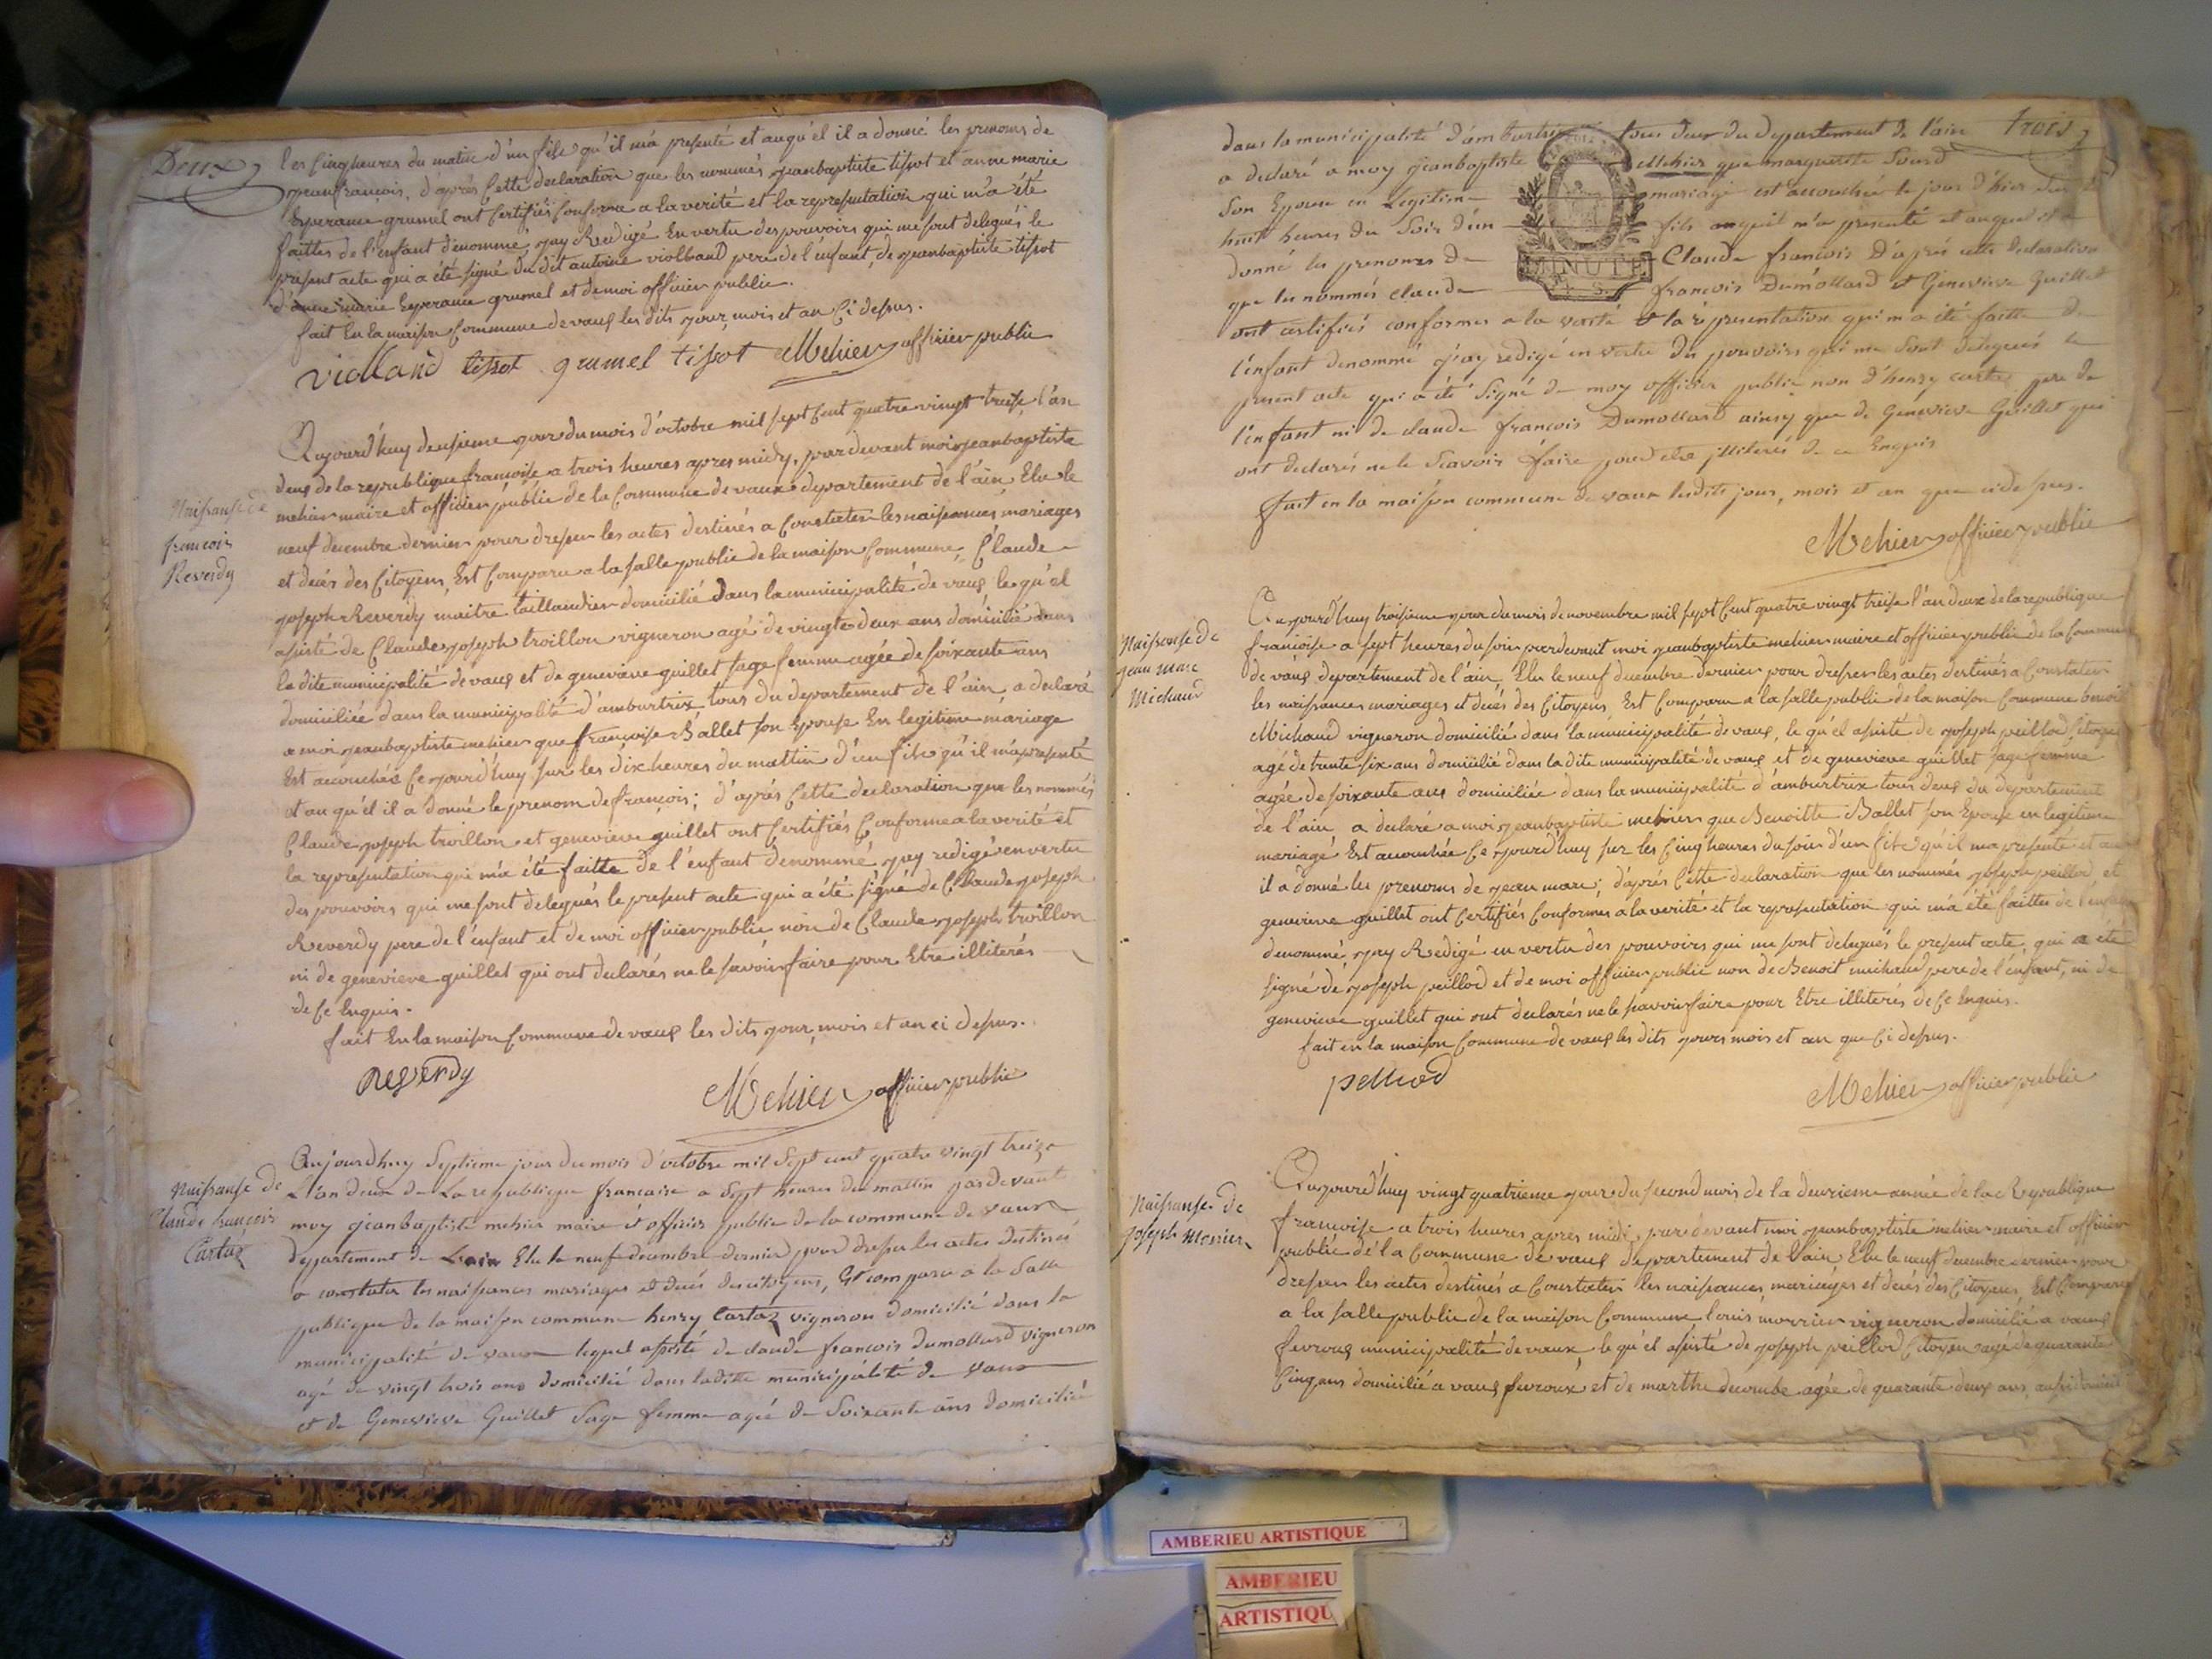 Deux
les cinq heures du matin d'un fils qu'il m'a presenté et auqu'el il a donné les prenoms de
jeanfrançois, d'après cette declaration que les nommés jeanbaptiste tissot et anne marie
Esperance grumel ont certifiés conforme a la verité et la representation qui m'a été
faittes de l'enfant dénommé, j'ay Redigé En vertu des pouvoirs qui me sont delegués le
present acte qui a été signé du dit antoine violland pere de l'enfant, de jeanbaptiste tissot
d'anne marie Esperance grumel et de moi officier public.
fait En la maison Commune de vaux les dits jour, mois et an Ci dessus.
violland tissot grumel tissot Mehier officier public
Naissanse de
françois
Reverdy
Aujourd'huy deusieme jour du mois d'octobre mil sept Cent quatre vingt treise, l'an
deux de la republique françoise a trois heures apres midy, pardevant moi jeanbaptiste
mehier maire et officier public de la Commune de vaux departement de l'ain Elu le
neuf decembre dernier pour dresser les actes destinés a Constater les naissances, mariages
et decés des Citoyens, Est Comparu a la salle public de la maison Commune, Claude
joseph Reverdy maitre taillandier domicilié dans la municipalité de vaux, le qu'el
assisté de Claude joseph troillon vigneron agé de vingt deux ans domicilié dans
la dite municipalité de vaux et de genevieve guillet sage femme agée de soixante ans
domiciliée dans la municipalité d'ambutrix tous du departement de l'ain, a declaré
a moi jeanbaptiste mehier que françoise Ballet son Epouse En legitime mariage
Est accouchée Ce jourd'huy sur les dix heures du mattin d'un fils qu'il m'a presenté
et au qu'el il a donné le prenom de françois; d'après Cette declaration que les nommés
Claude joseph troillon et genevieve guillet ont Certifiés Conforme a la verité et
la representation qui m'a été faitte de l'enfant dénommé, j'ay redigé en vertu
des pouvoirs qui me sont delegués le present acte qui a été signé de Claude joseph
Reverdy pere de l'enfant et de moi officier public non de Claude joseph troillon
ni de genevieve guillet qui ont declarés ne le savoir faire pour Etre illiterés
de Ce Enquis.
fait En la maison Commune de vaux les dits jour, mois et an ci dessus.
Reverdy Mehier officier public
Naissanse de
Claude françois
Cartaz
Aujourdhuy Septieme jour du mois d'octobre mil Sept cent quatre vingt treize
L'an deux de La republique française a Sept heures du mattin pardevant
moy jeanbaptiste mehier maire et officier public de la commune de vaux
departement de L'ain Elu le neuf decembre dernier pour dresser les actes destinés
a constater les naissances mariages et decés des citoyens, Est comparu a la Salle
publique de la maison commune henry Cartaz vigneron domicilié dans la
municipalité de vaux lequel assisté de claude françois dumollard vigneron
agé de vingt trois ans domicilié dans laditte municipalité de vaux
et de Genevieve Guillet Sage femme agée de Soixante ans domiciliée
trois
dans la municipalité d'ambutrix tous deux du departement de l'ain
a declaré a moy jeanbaptiste Mehier que marguerite Sourd
Son Epouse en Legitime mariage est accouchée le jour d'hier
huit heures du Soir d'un fils auquel m'a presenté et auquel il a
donné les prenoms de Claude françois D'après cette declaration
MINUTE
que les nommés claude françois Dumollard et Genevieve Guillet
ont certifiés conformes a la verité et la representation qui m'a été faitte de
l'enfant denommé j'ay redigé en vertu des pouvoirs qui me Sont delegués le
present acte qui a été Signé de moy officier public non d'henry cartaz pere de
l'enfant ni de claude françois Dumollard ainsy que de Genevieve Guillet qui
ont declarés ne le Scavoir faire pour etre illiterés de ce Enquis
fait en la maison commune de vaux lesdits jour, mois et an que cidessus.
Mehier officier public
Naissanse de
jean marc
Michaud
Aujourd'huy troisieme jour du mois de novembre mil sept Cent quatre vingt treise l'an deux de la republique
françoise a sept heures du soir pardevant moi jeanbaptiste mehier maire et officier public de la Commune
de vaux departement de l'ain, Elu le neuf decembre dernier pour dresser les actes destinés a Constater
les naissances mariages et decés des Citoyens, Est Comparu a la salle public de la maison Commune benoit
Michaud vigneron domicilié dans la municipalité de vaux, le qu'el assisté de joseph peillod Citoyen
agé de trente six ans domicilié dans la dite municipalité de vaux et de genevieve guillet sage femme
agée de soixante ans domiciliée dans la municipalité d'ambutrix tous deux du departement
de l'ain, a declaré a moi jeanbaptiste mehier que Benoitte Ballet son Epouse en legitime
mariage Est accouchée Ce jourd'huy sur les Cinq heures du soir d'un fils qu'il m'a presenté et au
il a donné les prenoms de jean marc; d'après Cette declaration que les nommés joseph peillod et
genevieve guillet ont Certifiés Conformes a la verité et la representation qui m'a été faittes de l'enfant
denommé, j'ay Redigé en vertu des pouvoirs qui me sont delegués le present acte, qui a été
signé de joseph peillod et de moi officier public non de Benoit michaud pere de l'enfant, ni de
genevieve guillet qui ont declarés ne le savoir faire pour Etre illiterés de Ce Enquis.
fait en la maison Commune de vaux les dits jour mois et an que Ci dessus.
peillod Mehier officier public
Naissanse de
joseph Morrier
Aujourd'huy vingt quatrieme jour du second mois de la deuxieme année de la Republique
françoise a trois heures apres midi, pardevant moi jeanbaptiste mehier maire et officier
public de la Commune de vaux departement de l'ain Elu le neuf decembre dernier pour
dresser les actes destinés a Constater les naissances, mariages et decés des Citoyens, Est Comparu
a la salle public de la maison Commune louis morrier vigneron domicilié a vaux
fevroux municipalité de vaux, le qu'el assisté de joseph peillod Citoyen agé de quarante
Cinq ans domicilié a vaux fevroux et de marthe decombe agée de quarante deux ans, aussi
AMBERIEU ARTISTIQUE
AMBERIEU
ARTISTIQU